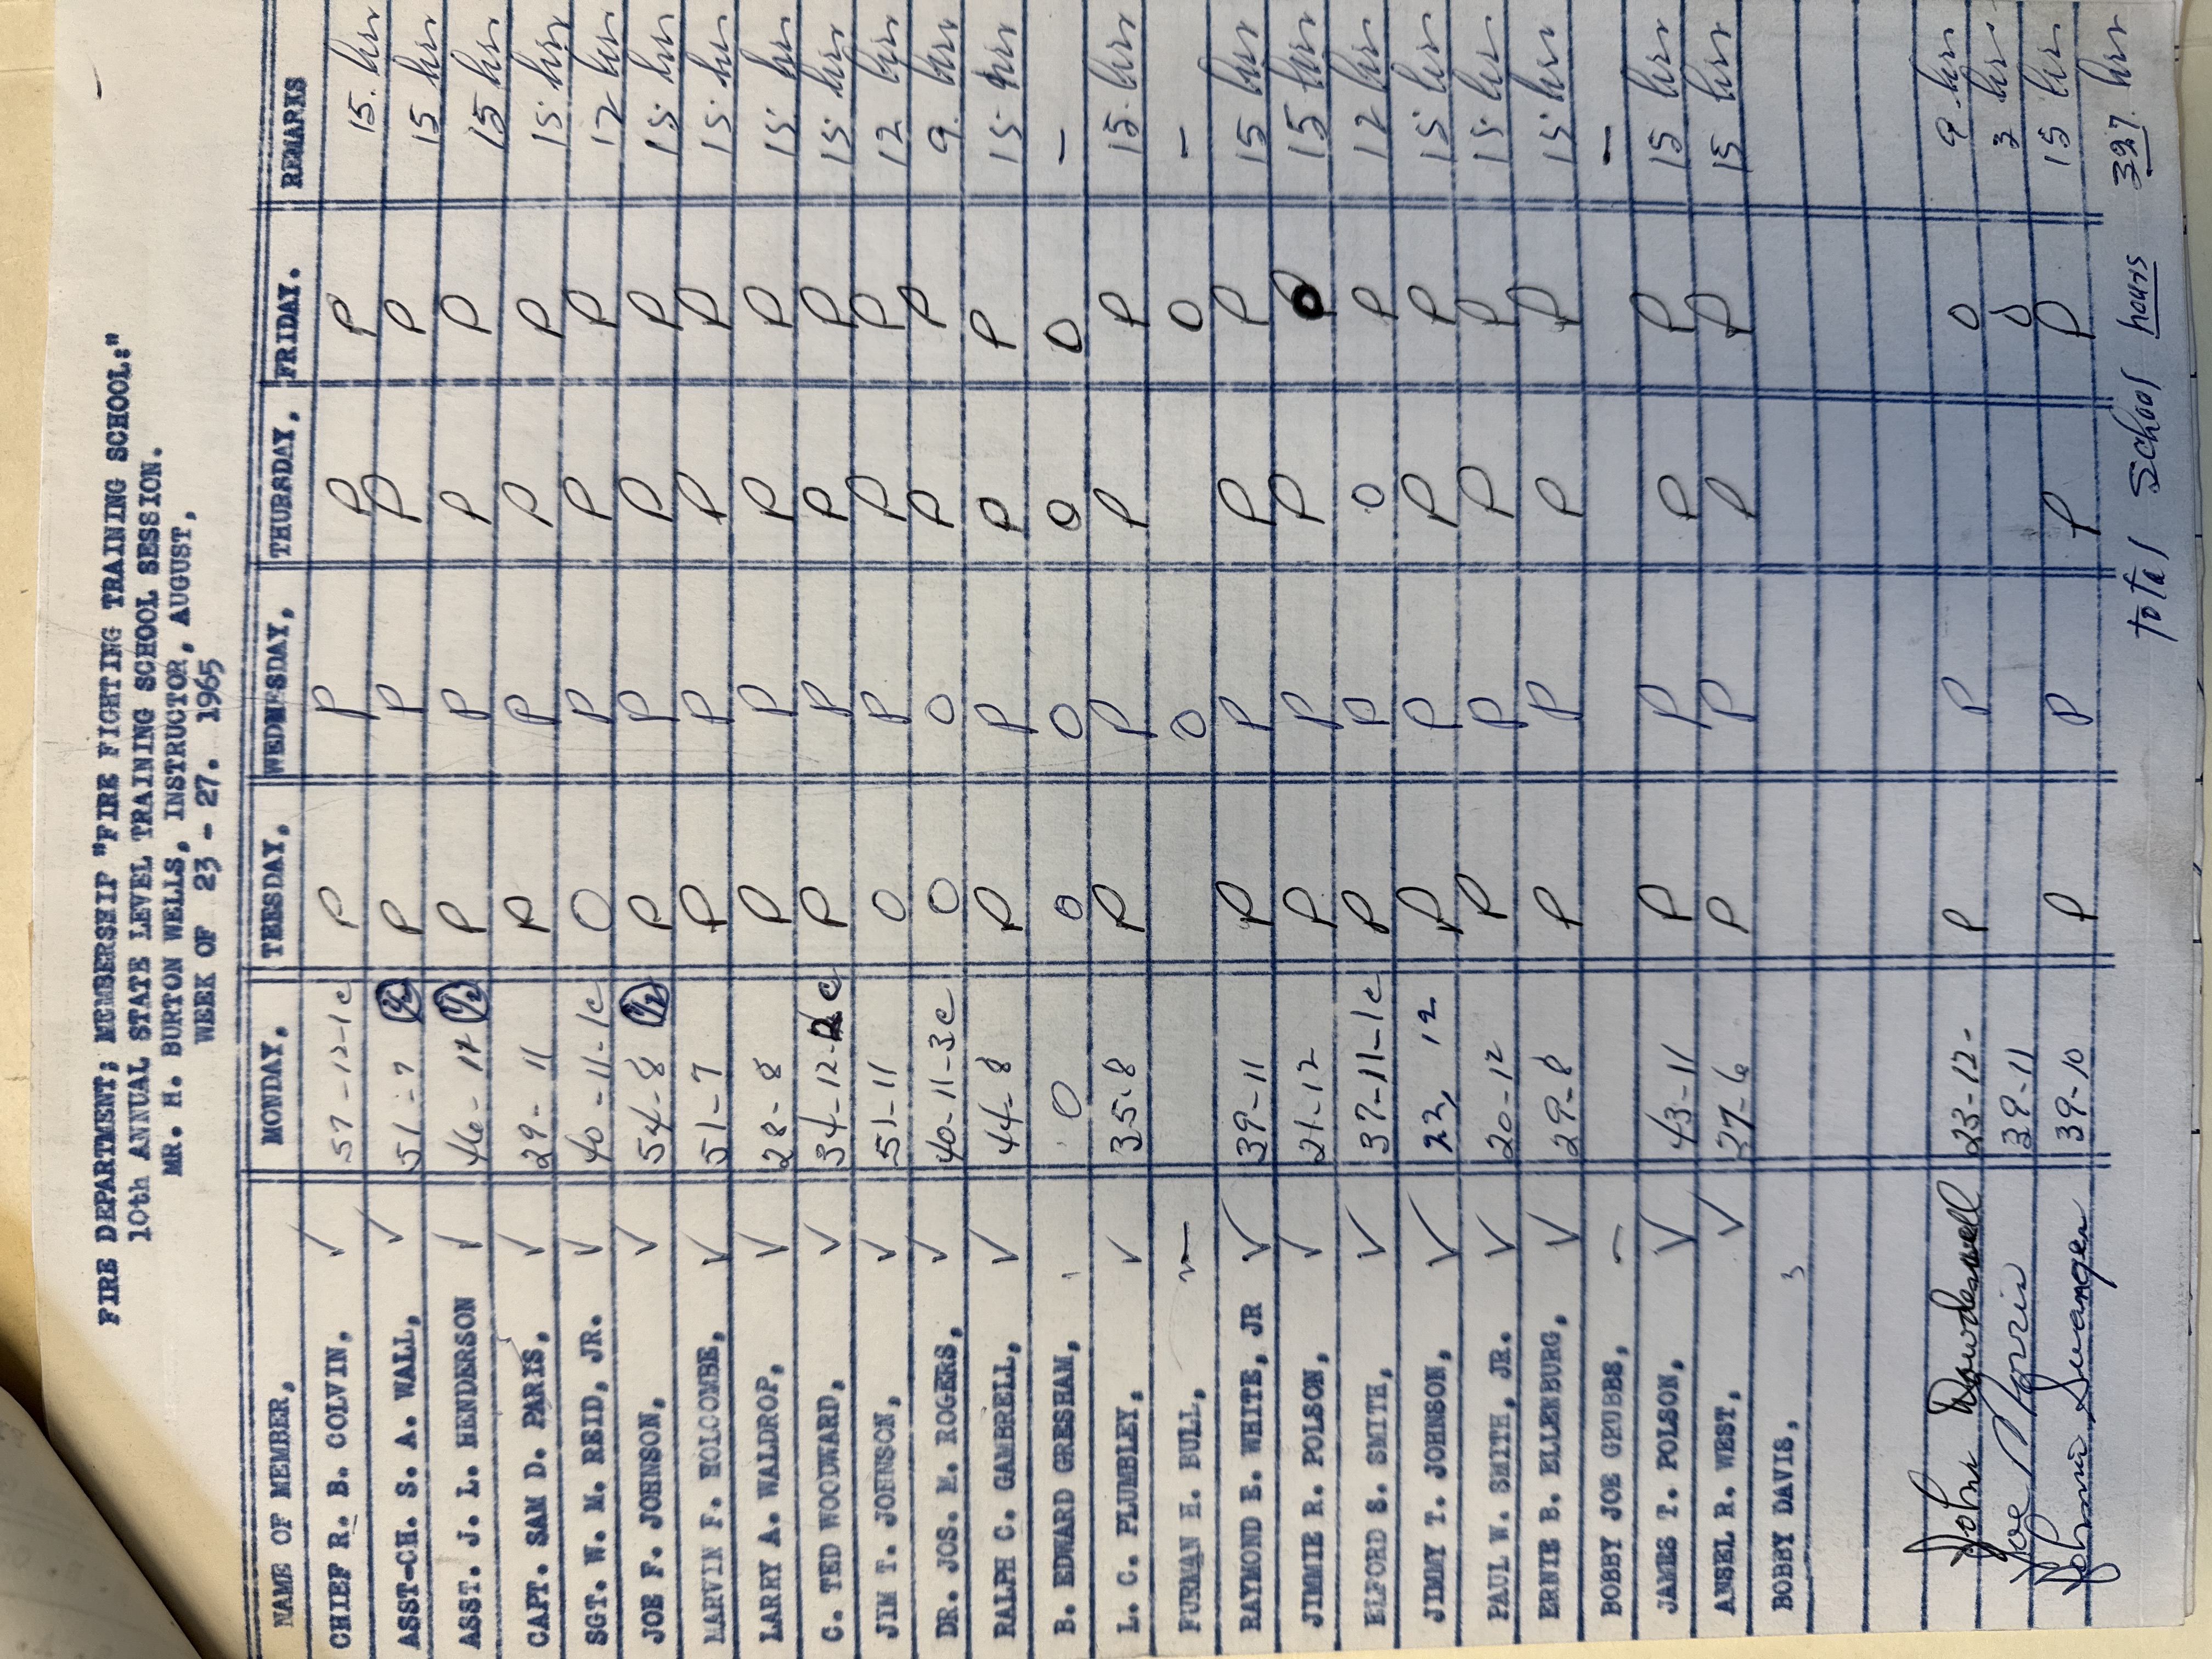 FIRE DEPARTMENT; MEMBERSHIP "FIRE FIGHTING TRAINING SCHOOL:"
10th ANNUAL STATE LEVEL TRAINING SCHOOL SESSION.
MR. H. BURTON WELLS, INSTRUCTOR, AUGUST,
WEEK OF 23 - 27. 1965
NAME OF MEMBER, MONDAY, TEESDAY, WEDNESDAY, THURSDAY, FRIDAY. REMARKS
CHIEF R. B. COLVIN, ✓ 57-12-1c P P P P 15. hrs
ASST-CH. S. A. WALL, ✓ 51-7 1/2 P P P P 15 hrs
ASST. J. L. HENDERSON ✓ 46-14 1/2 P P P P 15 hrs
CAPT. SAM D. PARIS, ✓ 29-11 P P P P 15. hrs
SGT. W. M. REID, JR. ✓ 40-11-1c O P P P 12 hrs
JOE F. JOHNSON, ✓ 54-8 1/2 P P P P 15. hrs
MARVIN F. HOLCOMBE, ✓ 51-7 P P P P 15. hrs
LARRY A. WALDROP, ✓ 28-8 P P P P 15. hrs
C. TED WOODWARD, ✓ 34-12- c P P P P 15. hrs
JIM T. JOHNSON, ✓ 51-11 O P P P 12 hrs
DR. JOS. M. ROGERS, ✓ 40-11-3c O O P P 9. hrs
RALPH C. GAMBRELL, ✓ 44-8 P P P P 15- hrs
B. EDWARD GRESHAM, O O O O O -
L. C. PLUMBLEY, ✓ 35-8 P P P P 15. hrs
FURMAN H. BULL, O O -
RAYMOND E. WHITE, JR ✓ 39-11 P P P P 15 hrs
JIMMIE R. POLSON, ✓ 21-12 P P P P 15 hrs
ELFORD S. SMITH, ✓ 37-11-1c P P O P 12 hrs
JIMMY T. JOHNSON, ✓ 22, 12 P P P P 15. hrs
PAUL W. SMITH, JR. ✓ 20-12 P P P P 15. hrs
ERNIE B. ELLENBURG, ✓ 29-8 P P P P 15. hrs
BOBBY JOE GRUBBS, - -
JAMES T. POLSON, ✓ 43-11 P P P P 15 hrs
ANSEL R. WEST, ✓ 27-6 P P P P 15 hrs
BOBBY DAVIS,
John Dowdeswell 23-12- P P O 9 hrs
Joe Norris 39-11 O 3 hrs
Johnnie Swanger 39-10 P P P P 15 hrs
Total School hours 327 hrs